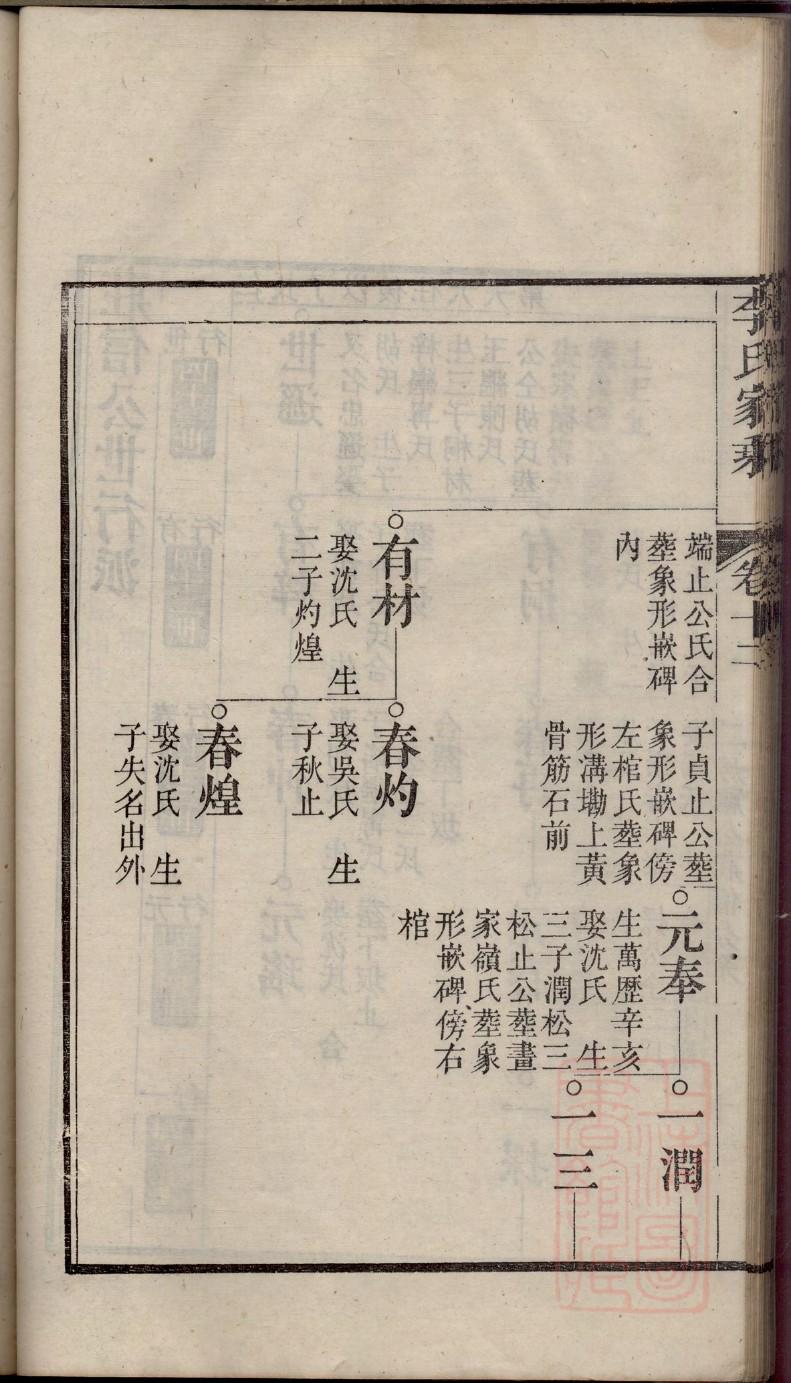 李氏家乘
卷十二
端止公氏合
塟象形嵌碑
內
子貞止公塟
象形嵌碑傍
左棺氏塟象
形溝塝上黃
骨筋石前
元奉
生萬歷辛亥
娶沈氏　生
三子潤松三
松止公塟畫
家嶺氏塟象
形嵌碑傍右
棺
一潤
一三
有材
娶沈氏　生
二子灼煌
春灼
娶吳氏　生
子秋止
春煌
娶沈氏　生
子失名出外